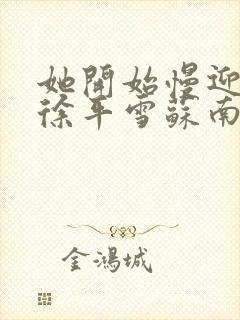 她開始慢迎
徐平雪蘇南
金鴻城